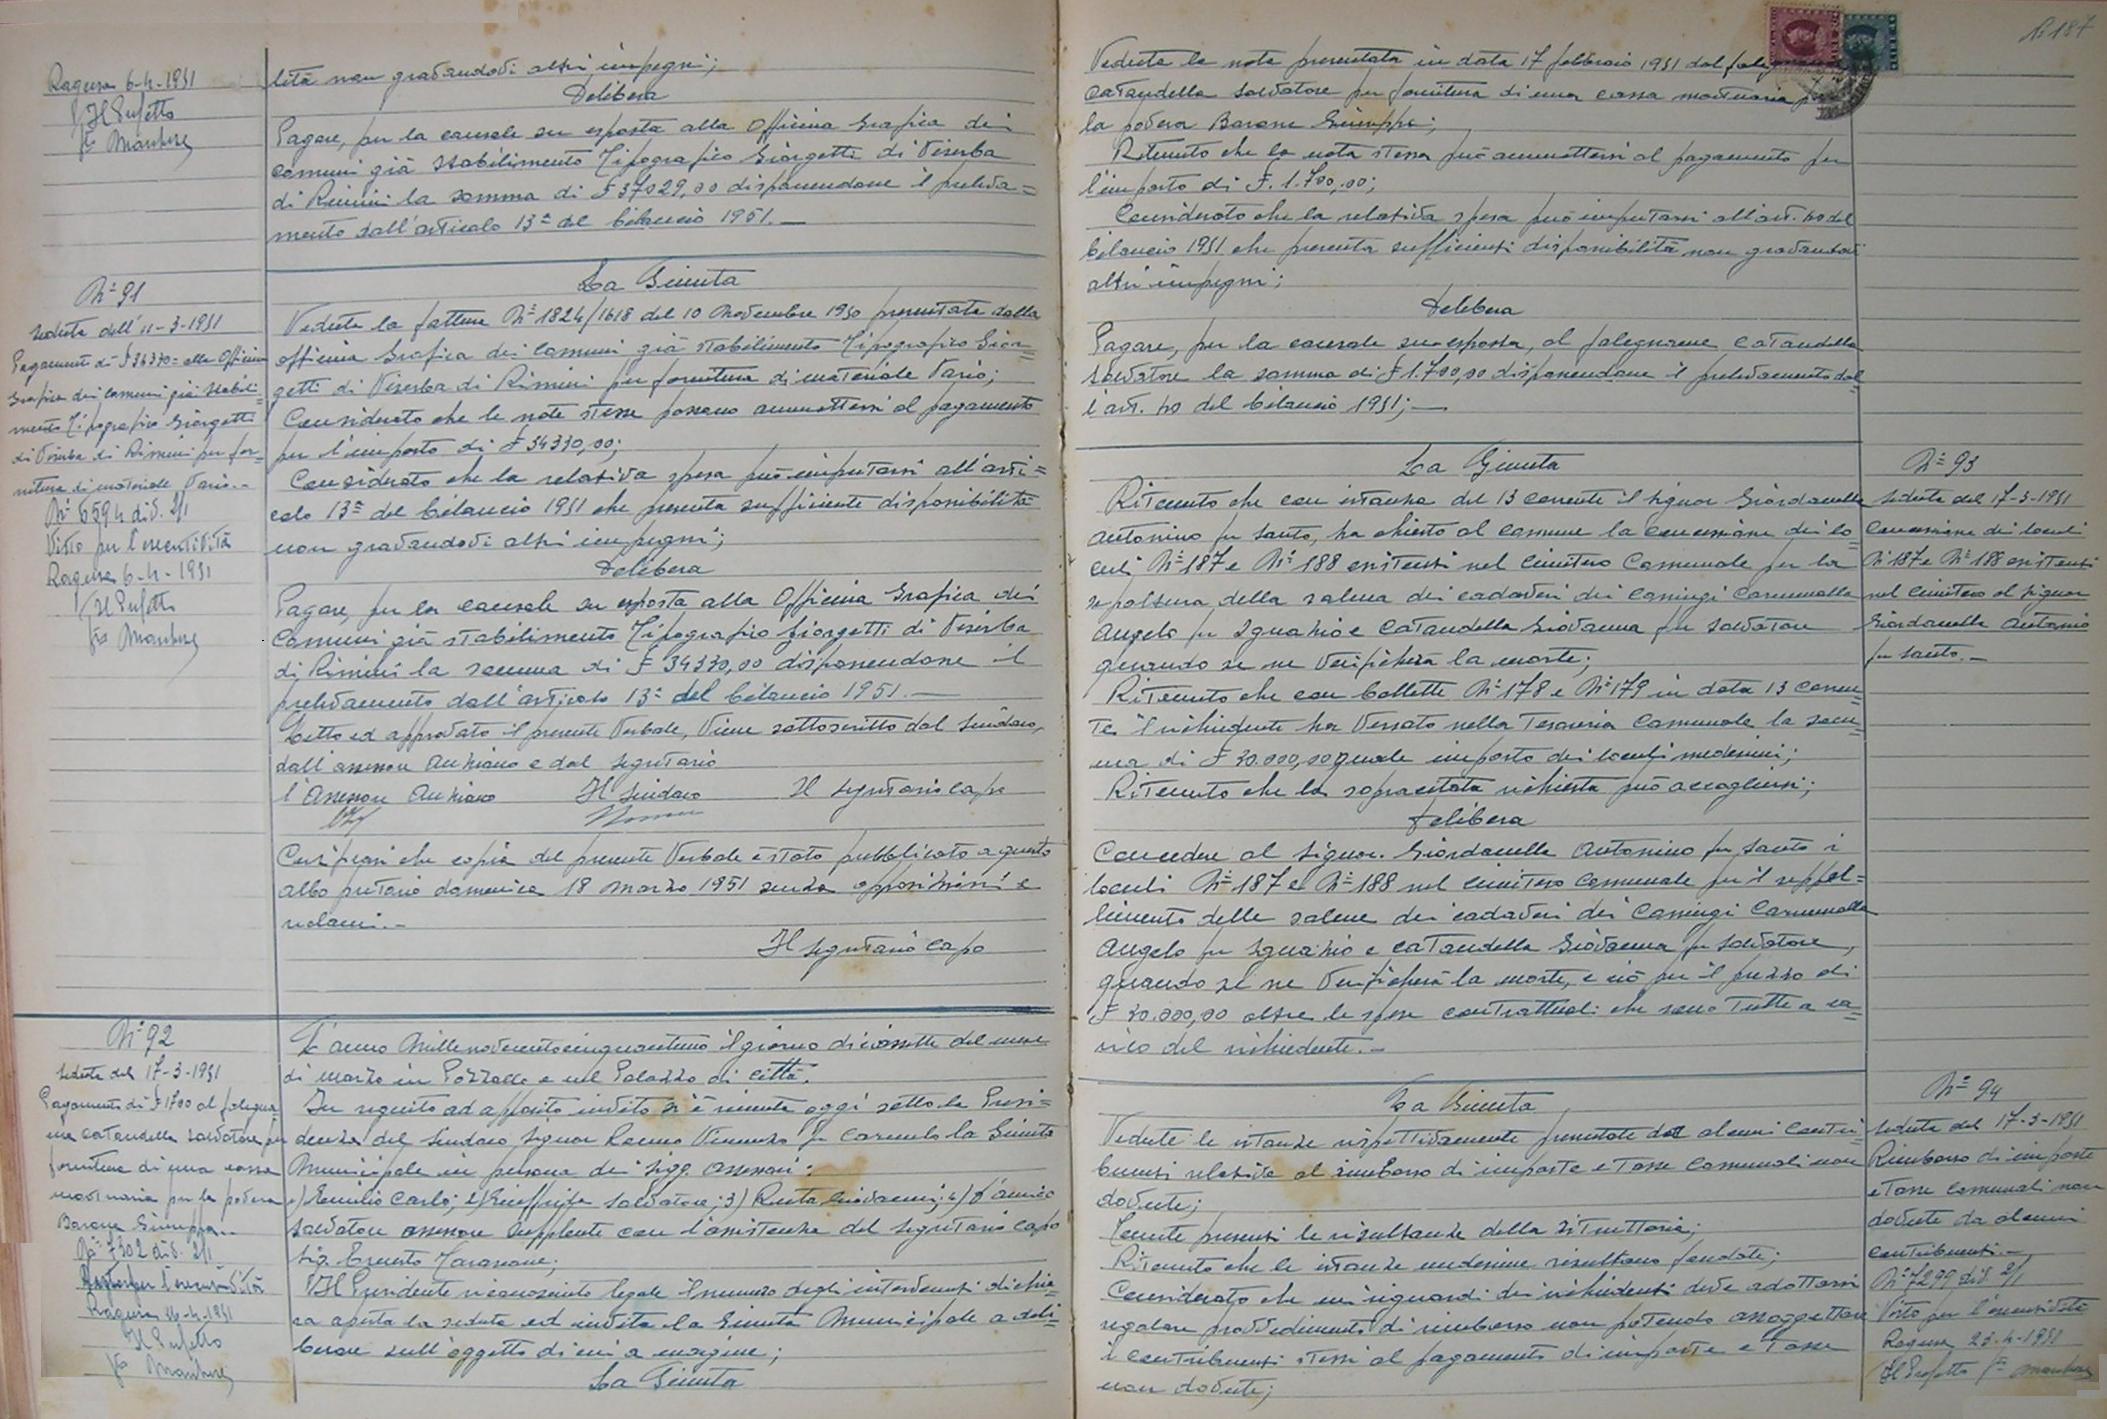 Ragusa 6-4-1951
Il Prefetto
lità non gravandovi altri impegni;
Delibera
Pagare, per la causale su esposta alla Officina Grafica dei
Comuni già Stabilimento Tipografico Giorgetti di Viserba
di Rimini la somma di £ 37029,00 disponendone il preleva=
mento dall'articolo 13° del bilancio 1951.—
N° 91
Seduta dell'11-3-1951
Pagamento di £ 34330= alla Officina
Grafica dei Comuni già Stabili=
mento Tipografico Giorgetti
di Viserba di Rimini per for=
nitura di materiale vario.-
N° 6594 div. 2/1
Visto per l'esecutività
Ragusa 6-4-1951
Il Prefetto
La Giunta
Veduta la fattura N° 1824/1618 del 10 Novembre 1950 presentata dalla
officina Grafica dei Comuni già stabilimento Tipografico Gior=
getti di Viserba di Rimini per fornitura di materiale vario;
Considerato che le note stesse possono ammettersi al pagamento
per l'importo di £ 34330,00;
Considerato che la relativa spesa può imputarsi all'arti=
colo 13° del bilancio 1951 che presenta sufficiente disponibilità
non gravandovi altri impegni;
Delibera
Pagare, per la causale su esposta, alla Officina Grafica dei
Comuni già stabilimento Tipografico Giorgetti di Viserba
di Rimini la somma di £ 34330,00 disponendone il
prelevamento dall'articolo 13° del bilancio 1951.—
Letto ed approvato il presente verbale, viene sottoscritto dal Sindaco,
dall'assessore Anziano e dal Segretario
l'Assessore Anziano Il Sindaco Il Segretario Capo
Certificasi che copia del presente verbale è stato pubblicato a questo
albo pretorio domenica 18 marzo 1951 senza opposizioni e
reclami.-
Il Segretario Capo
N° 92
Seduta del 17-3-1951
Pagamento di £ 1700 al falegna=
me Cataudella Salvatore per
fornitura di una cassa
mortuaria per la povera
Barone Giuseppa.-
N° 7302 div. 2/1
per l'esecutività
Ragusa 4-1951
Il Prefetto
L'anno Millenovecentocinquantuno il giorno diciassette del mese
di marzo in Pozzallo e nel Palazzo di città.
In seguito ad apposito invito si è riunita oggi sotto la Presi=
denza del Sindaco Signor Vincenzo fu Carmelo la Giunta
Municipale in persona dei Sigg. Assessori:
1) Emilio Carlo; 2) Giuffrida Salvatore; 3) Giovanni; 4) D'Amico
Salvatore assessore supplente con l'assistenza del Segretario Capo
Sig. Ernesto
Il Presidente riconosciuto legale il numero degli intervenuti dichia=
ra aperta la seduta ed invita la Giunta Municipale a deli=
berare sull'oggetto di cui a margine;
La Giunta
N° 187
Veduta la nota presentata in data 17 febbraio 1951 dal
Cataudella Salvatore per fornitura di una cassa mortuaria
la povera Barone Giuseppa;
Ritenuto che la nota stessa può ammettersi al pagamento per
l'importo di £. 1.700,00;
Considerato che la relativa spesa può imputarsi all'art. 40 del
bilancio 1951 che presenta sufficienti disponibilità non gravandovi
altri impegni;
Delibera
Pagare, per la causale su esposta, al falegname Cataudella
Salvatore la somma di £ 1.700,00 disponendone il prelevamento dal=
l'art. 40 del bilancio 1951;—
La Giunta
Ritenuto che con istanza del 13 corrente il Signor Giordanella
Antonino fu Santo, ha chiesto al Comune la concessione dei lo=
culi N° 187 e N° 188 esistenti nel Cimitero Comunale per la
sepoltura della salma dei cadaveri dei coniugi Carnemolla
Angelo fu Ignazio e Cataudella Giovanna fu Salvatore
quando se ne verificherà la morte;
Ritenuto che con bollette N° 178 e N° 179 in data 13 corren=
te il richiedente ha versato nella Tesoreria Comunale la som=
ma di £ 30.000,00 quale importo dei loculi medesimi;
Ritenuto che la sopracitata richiesta può accogliersi;
Delibera
Concedere al Signor. Giordanella Antonino fu Santo i
loculi N° 187 e N° 188 nel Cimitero Comunale per il seppel=
limento delle salme dei cadaveri dei Coniugi Carnemolla
Angelo fu Ignazio e Cataudella Giovanna fu Salvatore,
quando se ne verificherà la morte, e ciò per il prezzo di
£ 30.000,00 oltre le spese contrattuali che sono tutte a ca=
rico del richiedente.-
N° 93
Seduta del 17-3-1951
Concessione dei loculi
N° 187 e N° 188 esistenti
nel Cimitero al Signor
Giordanella Antonio
fu Santo.-
La Giunta
Vedute le istanze rispettivamente presentate da alcuni contri=
buenti relative al rimborso di imposte e tasse comunali non
dovute;
Tenute presenti le risultanze della istruttoria;
Ritenuto che le istanze medesime risultano fondate;
Considerato che nei riguardi dei richiedenti deve adottarsi
regolare provvedimento di rimborso non potendo assoggettare
i contribuenti stessi al pagamento di imposte e tasse
non dovute;
N° 94
Seduta del 17-3-1951
Rimborso di imposte
e tasse comunali non
dovute da alcuni
contribuenti.-
N° 7299 div. 2/1
Visto per l'esecutività
Ragusa 23-4-1951
Il Prefetto